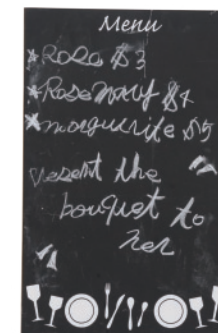 Menu
*Rose $3
*Rosemary $4
*marguerite $5
present the
bouquet to
her